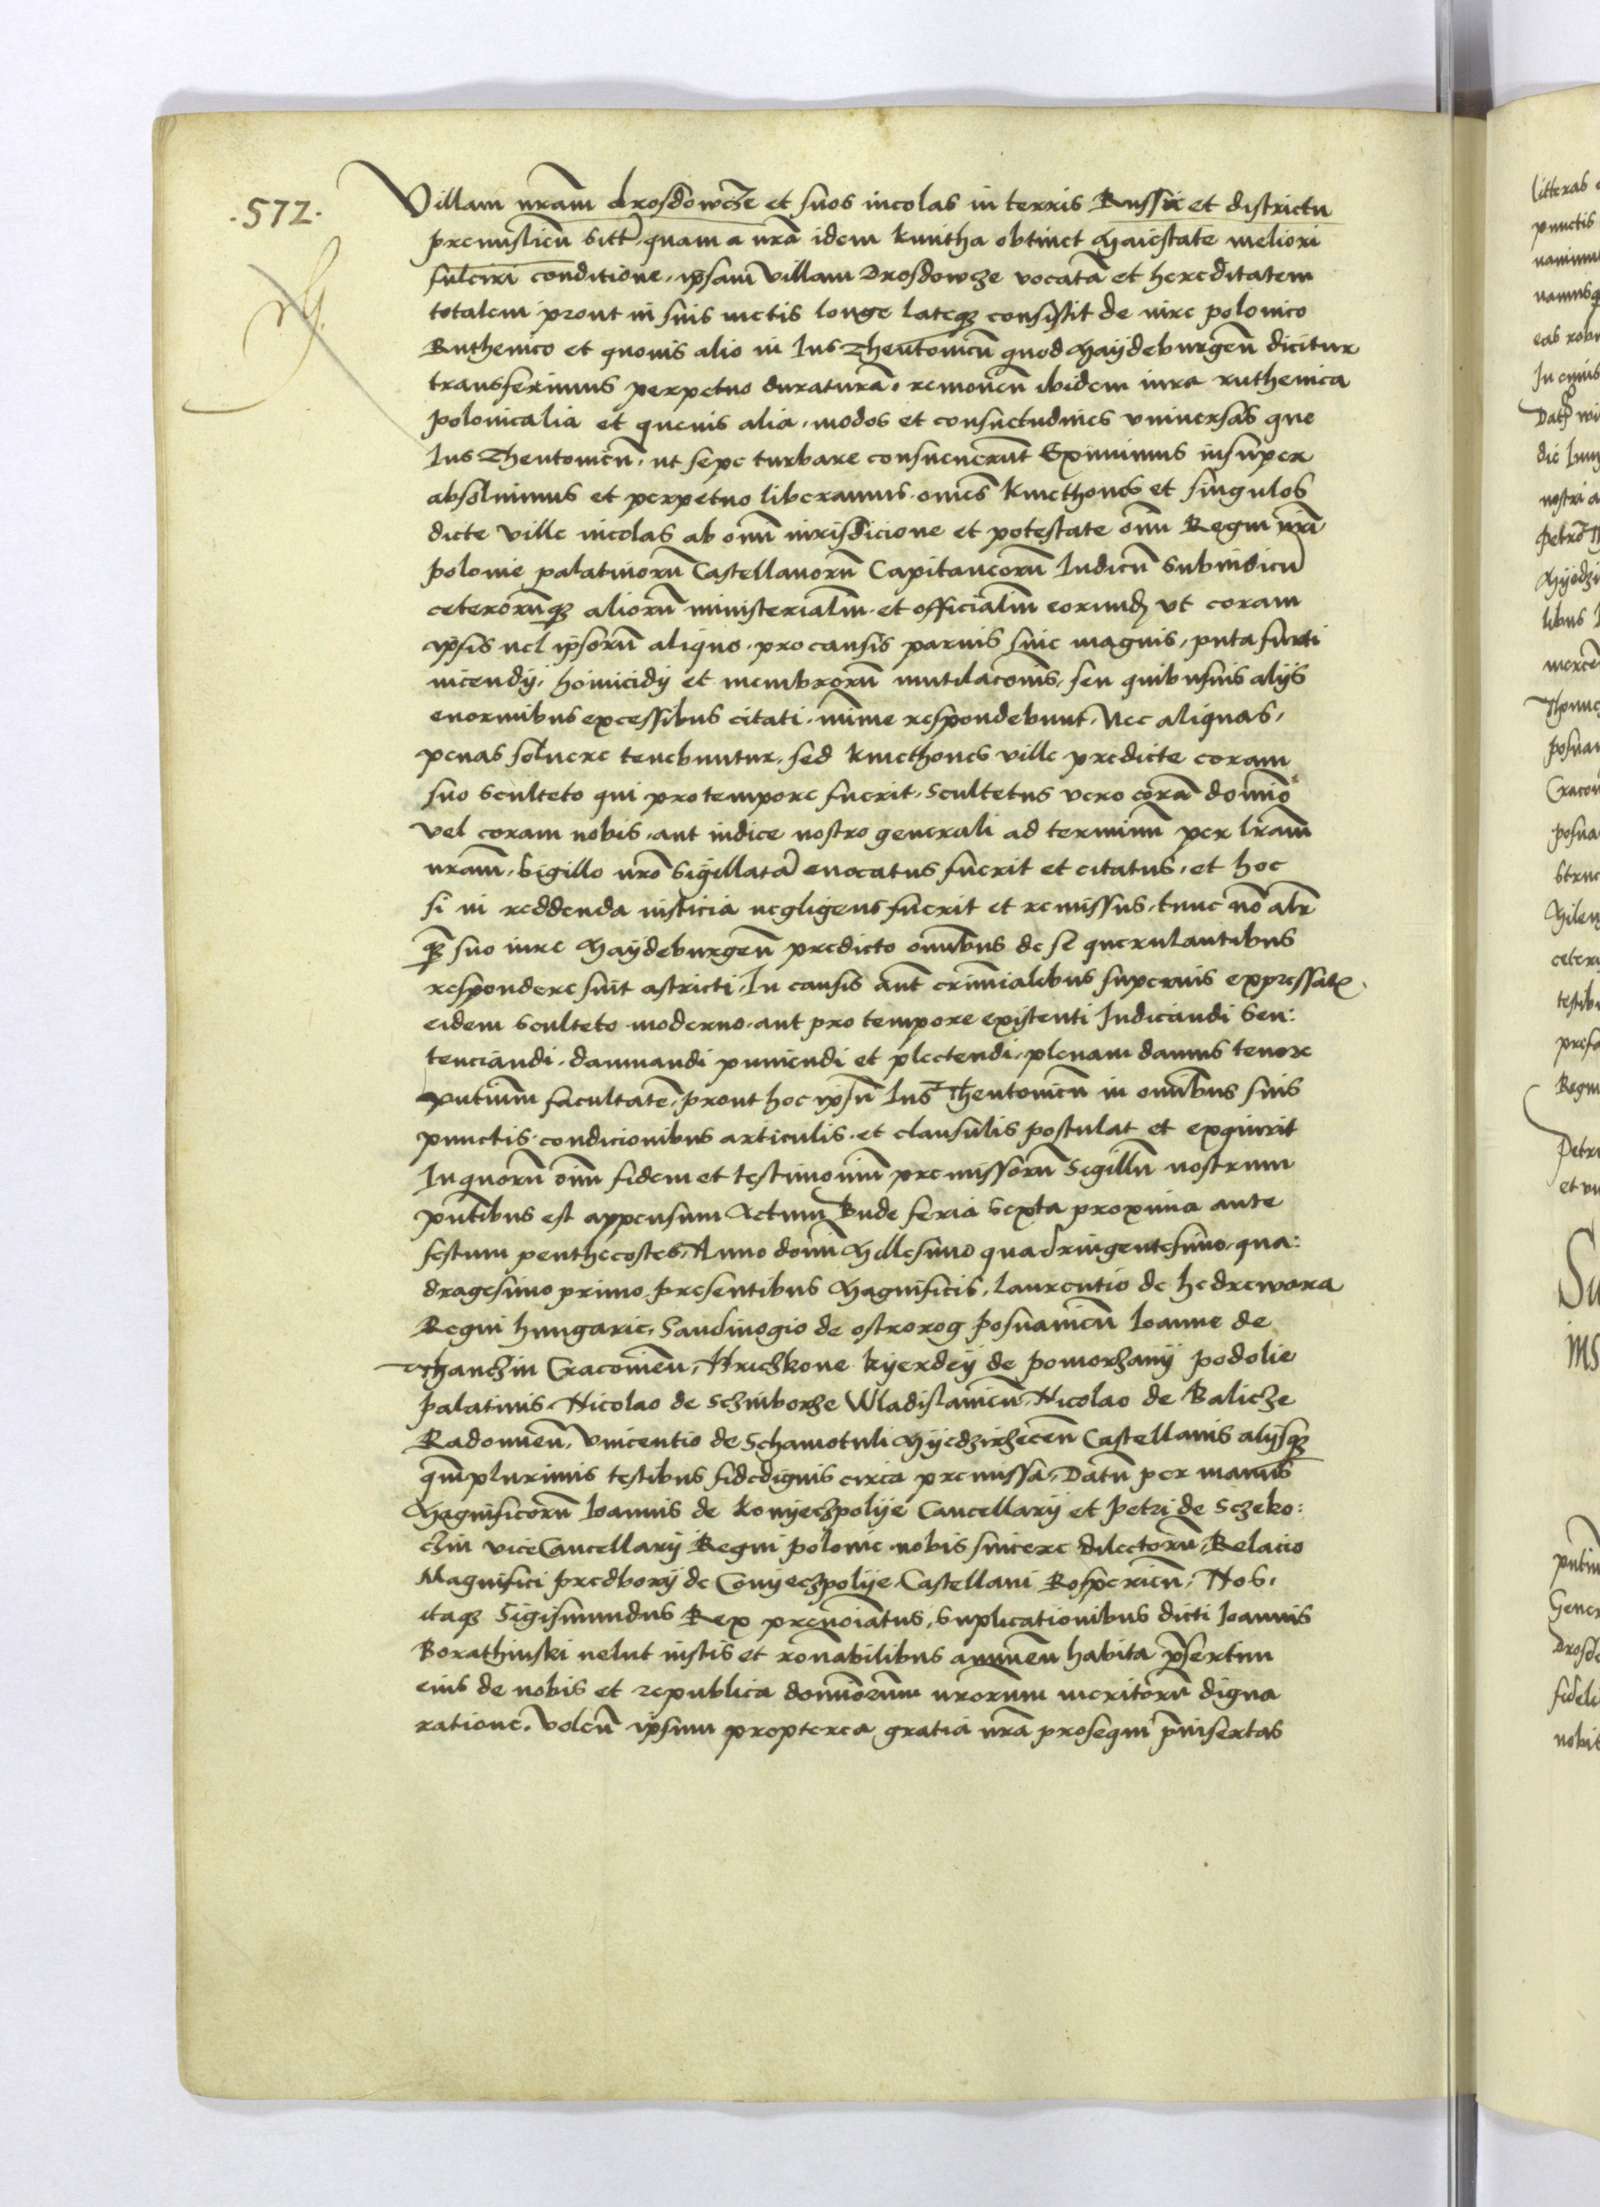 .572.
Villam nram drosdowcze et suos incolas in terris Russie et districtu
premislien sitt quam a nra idem kmitha obtinet Maiestate meliori
fulciri conditione, ipsam villam Drosdowcze vocata et hereditatem
totalem prout in suis metis longe lateq consistit de iure polonico
Ruthenico et quouis alio in Ius Theutonicu quod Maydeburgen dicitur
transferimus perpetuo duratura, remouen ibidem iura ruthenica
polonicalia et queuis alia, modos et consuetudines vniuersas que
Ius Theutonicu, ut sepe turbare consueuerut Eximimus insuper
absoluimus et perpetuo liberamus omes kmethones et singulos
dicte ville incolas ab omi iurisdicione et potestate oim Regni nri
polonie palatinoru Castellanoru Capitaneoru Iudicu Subiudicu
ceterorumq aliorū ministerialiu et officialiu eorund vt coram
ipsis uel ipsoru aliquo, pro causis paruis siue magnis, puta furti
incendij, homicidij et membroru mutilaconis, seu quibusuis alijs
enormibus excessibus citati, mime respondebunt, Nec aliquas,
penas soluere tenebuntur, sed kmethones ville predicte coram
suo sculteto qui pro tempore fuerit, scultetus vero cora domino
vel coram nobis, aut iudice nostro generali ad terminu per lram
nram, sigillo nro sigillata euocatus fuerit et citatus, et hoc
si in reddenda iusticia negligens fuerit et remissus, tunc no alr
q suo iure Maydeburgen predicto omibus de se querulantibus
respondere sint astricti, In causis aut criminalibus superius expressatis
eidem sculteto moderno aut pro tempore existenti Iudicandi Sen:
tenciandi, damnandi puniendi et plectendi, plenam damus tenore
pntium facultate, prout hoc ipsu Ius Theutonicu in omibus suis
punctis condicionibus articulis et clausulis postulat et exquirit
In quoru oim fidem et testimoniu premissoru Sigillu nostrum
pntibus est appensum Actum Bude feria sexta proxima ante
festum penthecostes, Anno domi Millesimo quadringentesimo, qua:
dragesimo primo, presentibus Magnificis, Laurentio de hedrewara
Regni hungarie, Sandinogio de ostrorog posnanien Ioanne de
Thanczin Cracouien, Hriczkone kyerdey de pomorzany podolie
palatinis, Nicolao de Sczinborze Wladislauien, Nicolao de Balicze
Radomien, vincentio de Schamotuli Myedzirzecen Castellanis alijsq
qm plurimis testibus fidedignis circa premissa, Datu per manus
Magnificoru Ioannis de konyeczpolye Cancellarij et petri de Sczeko:
czin vice Cancellarij Regni polonie nobis sincere dilectoru, Relacio
Magnifici predborij de Conyeczpolye, Castellani Rosperien, Nos,
itaq Sigismundus Rex prenoiatus, suplicationibus dicti Ioannis
Borathinski uelut iustis et ronabilibus annuen habita psertim
eius de nobis et republica domorum nrorum meritoru digna
ratione, volen ipsum propterea gratia nra prosequi pinsertas